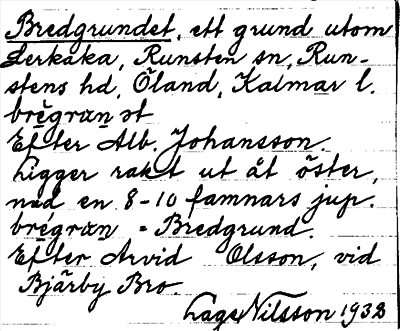 Bredgrundet, ett grund utom
Lerkaka, Runsten sn, Run-
stens hd, Öland, Kalmar l.
brēgrαn ət
Efter Alb. Johansson.
Ligger rakt ut åt öster,
med en 8-10 famnars jup.
brēgrαn = Bredgrund.
Efter Arvid Olsson, vid
Bjärby Bro.
Lage Nilsson 1932